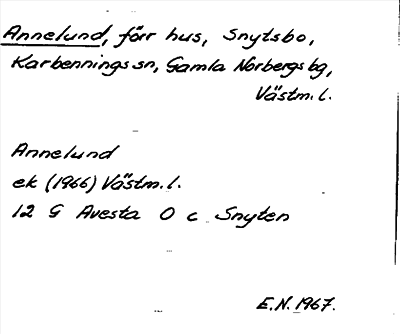 Annelund, förr hus, Snytsbo,
Karbennings sn, Gamla Norbergs bg,
Västm. l.
Annelund
ek (1966) Västm. l.
12 G Avesta O c Snyten
E.N. 1967.